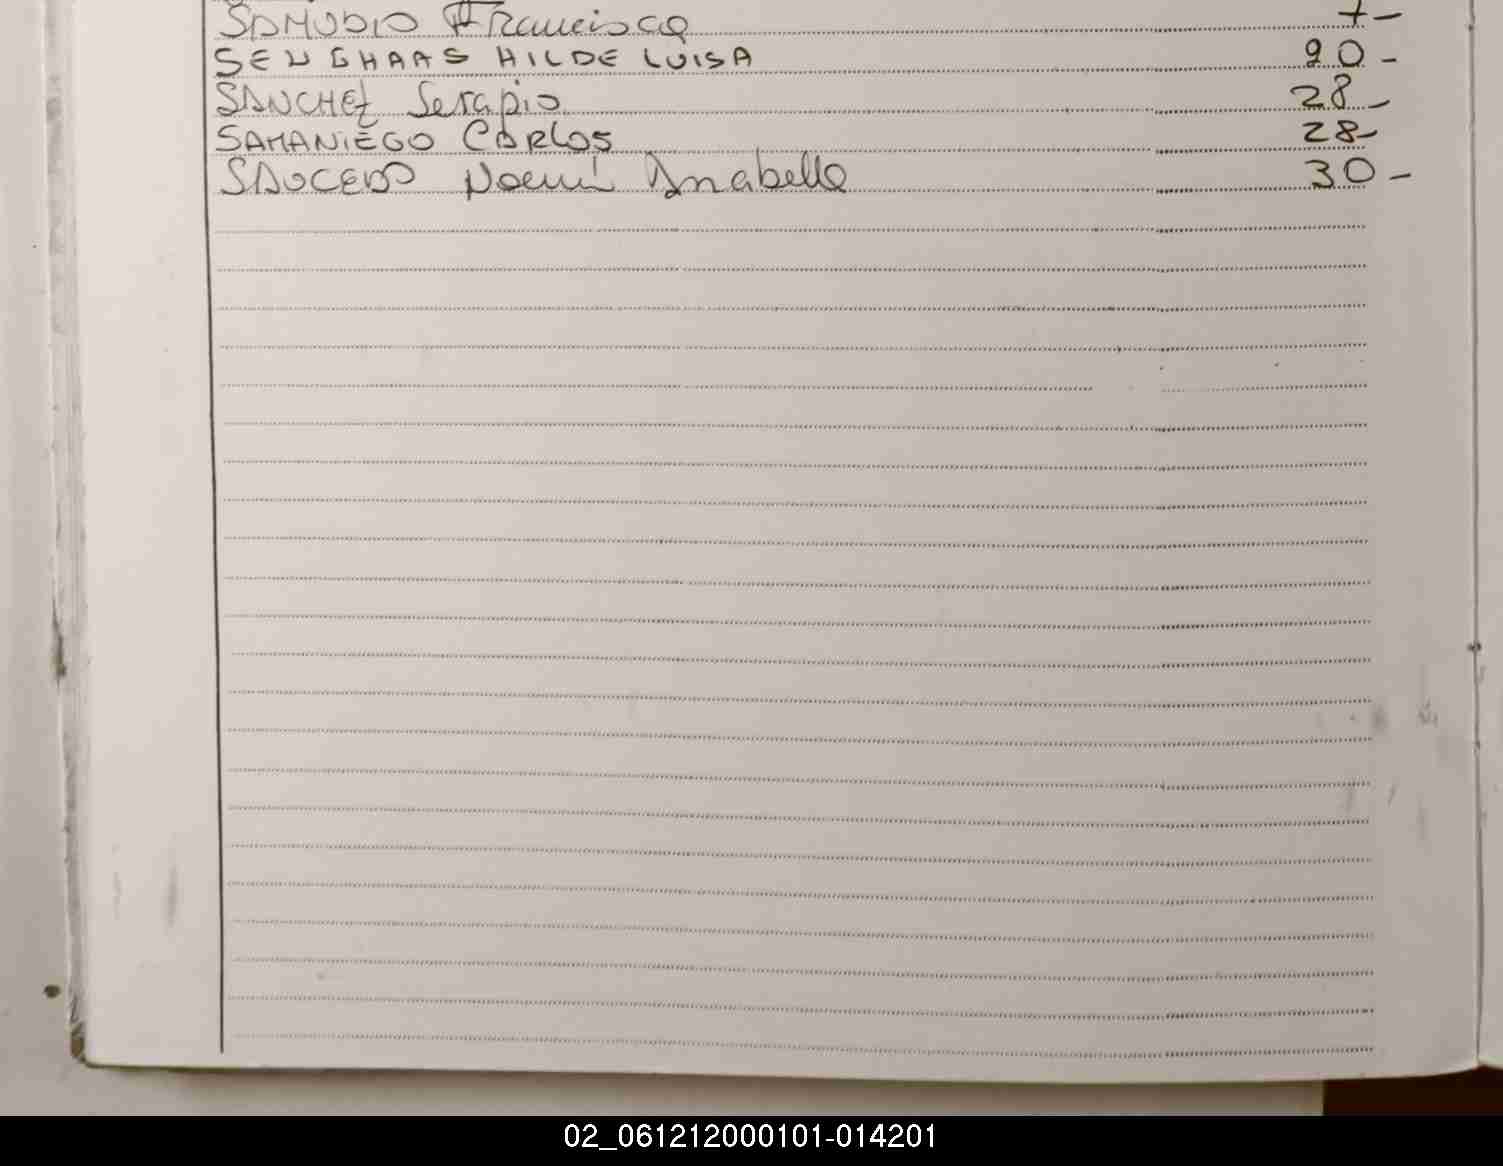 SAMUDIO Francisca 7-
SENGHAAS HILDE LUISA 20-
SANCHEZ Serapio 28-
SAMANIEGO CARLOS 28-
SAUCEDO Noemí Anabella 30-
02_061212000101-014201